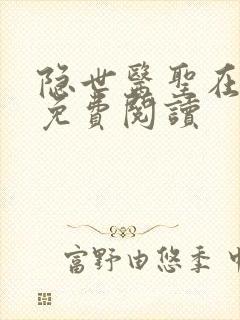 隐世醫聖在
免費閱讀
富野由悠季 中